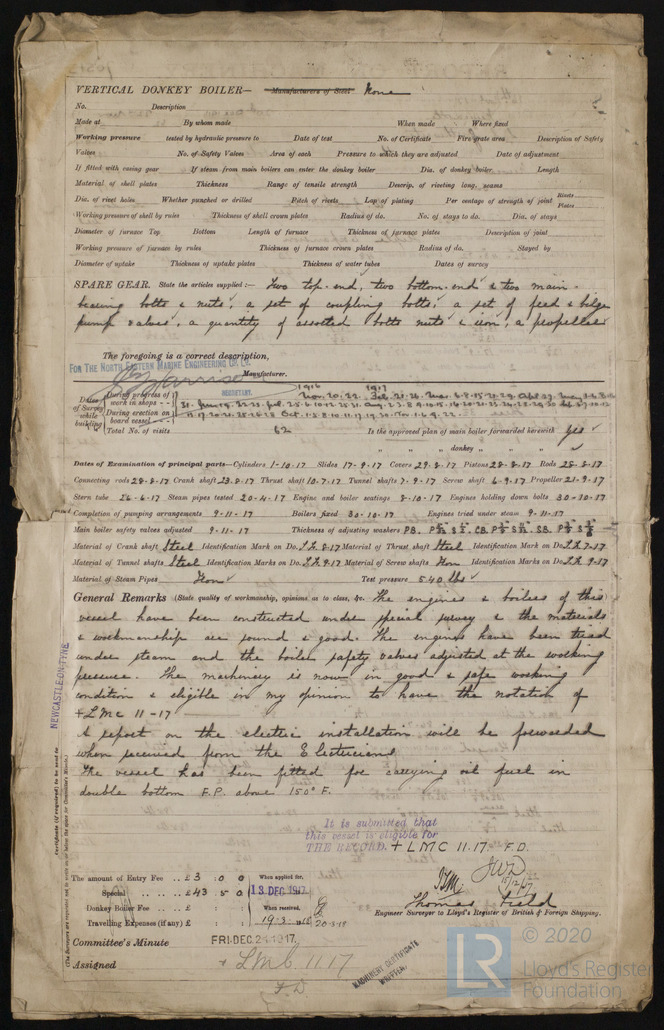 VERTICAL DONKEY BOILER— Manufacturers of Steel None
No. Description
Made at By whom made When made Where fixed
Working pressure tested by hydraulic pressure to Date of test No. of Certificate Fire grate area Description of Safety
Valves No. of Safety Valves Area of each Pressure to which they are adjusted Date of adjustment
If fitted with easing gear If steam from main boilers can enter the donkey boiler Dia. of donkey boiler Length
Material of shell plates Thickness Range of tensile strength Descrip. of riveting long. seams
Dia. of rivet holes Whether punched or drilled Pitch of rivets Lap of plating Per centage of strength of joint Rivets Plates
Working pressure of shell by rules Thickness of shell crown plates Radius of do. No. of stays to do. Dia. of stays
Diameter of furnace Top Bottom Length of furnace Thickness of furnace plates Description of joint
Working pressure of furnace by rules Thickness of furnace crown plates Radius of do. Stayed by
Diameter of uptake Thickness of uptake plates Thickness of water tubes Dates of survey
SPARE GEAR. State the articles supplied:— Two top-end, two bottom-end & two main-
bearing bolts & nuts, a set of coupling bolts, a set of feed & bilge
pump valves, a quantity of assorted bolts nuts & iron, a propeller
The foregoing is a correct description,
FOR THE NORTH EASTERN MARINE ENGINEERING Co. Ld.
Manufacturer.
SECRETARY.
1916 1917
Dates of Survey while building
During progress of work in shops - -
During erection on board vessel - - -
Total No. of visits 62 Is the approved plan of main boiler forwarded herewith Yes
" " " donkey " "
Dates of Examination of principal parts—Cylinders 1-10-17 Slides 17-9-17 Covers 29-8-17 Pistons 28-8-17 Rods 28-8-17
Connecting rods 28-8-17 Crank shaft 23-8-17 Thrust shaft 10-7-17 Tunnel shafts 7-9-17 Screw shaft 6-9-17 Propeller 21-9-17
Stern tube 26-6-17 Steam pipes tested 20-4-17 Engine and boiler seatings 8-10-17 Engines holding down bolts 30-10-17
Completion of pumping arrangements 9-11-17 Boilers fixed 30-10-17 Engines tried under steam 9-11-17
Main boiler safety valves adjusted 9-11-17 Thickness of adjusting washers
Material of Crank shaft Steel Identification Mark on Do. T.F. 8-17 Material of Thrust shaft Steel Identification Mark on Do. T.F. 7-17
Material of Tunnel shafts Steel Identification Marks on Do. T.F. 9-17 Material of Screw shafts Iron Identification Marks on Do. T.F. 9-17
Material of Steam Pipes Iron Test pressure 540 lbs
General Remarks (State quality of workmanship, opinions as to class, &c. The engines & boilers of this
vessel have been constructed under special survey & the materials
& workmanship are sound & good. The engines have been tried
under steam and the boiler safety valves adjusted at the working
pressure. The machinery is now in good & safe working
condition & eligible in my opinion to have the notation of
+LMC 11-17
A report on the electric installation will be forwarded
when received from the Electricians
The vessel has been fitted for carrying oil fuel in
double bottom F.P. above 150° F.
NEWCASTLE-ON-TYNE
Certificate (if required) to be sent to
(The Surveyors are requested not to write on or below the space for Committee's Minute.)
It is submitted that
this vessel is eligible for
THE RECORD. + LMC 11.17. F.D.
The amount of Entry Fee .. £ 3 : 0 : 0 When applied for,
Special .. .. .. £ 43 . 5 0 13 DEC 1917
Donkey Boiler Fee .. .. £ : : When received,
Travelling Expenses (if any) £ : : 19-3-1918 20-3-18
Thomas Field
Engineer Surveyor to Lloyd's Register of British & Foreign Shipping.
Committee's Minute FRI. DEC. 21 1917
Assigned + LMC 11.17
F.D
MACHINERY CERTIFICATE
WRITTEN.
LR
© 2020
Lloyd's Register
Foundation